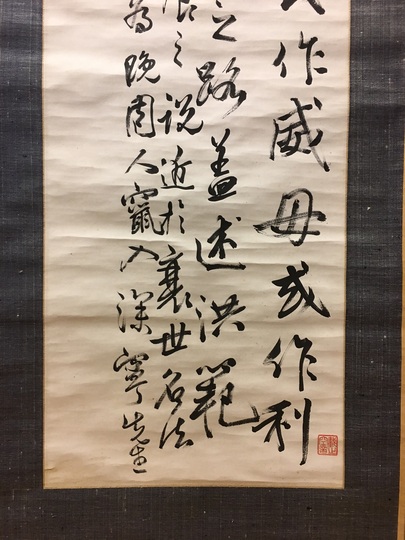 或作威毋或作利
之路蓋述洪範
之說近於衰世名法
為晚周人竄入深寧先生